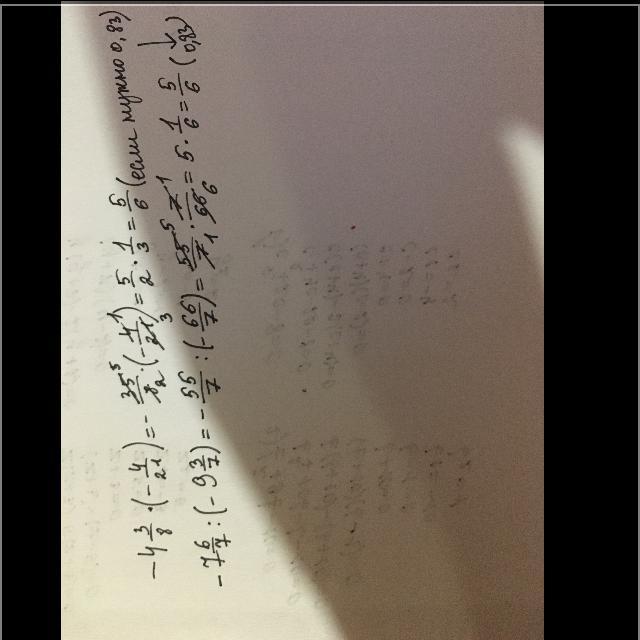 -4 3/8 · (- 4/21) = - 35/8 · (- 4/21) = 5/2 · 1/3 = 5/6 (если нужно 0,83)
-7 6/7 : (-9 3/7) = - 55/7 : (- 66/7) = 55/7 · 7/66 = 5 · 1/6 = 5/6 (0,83)